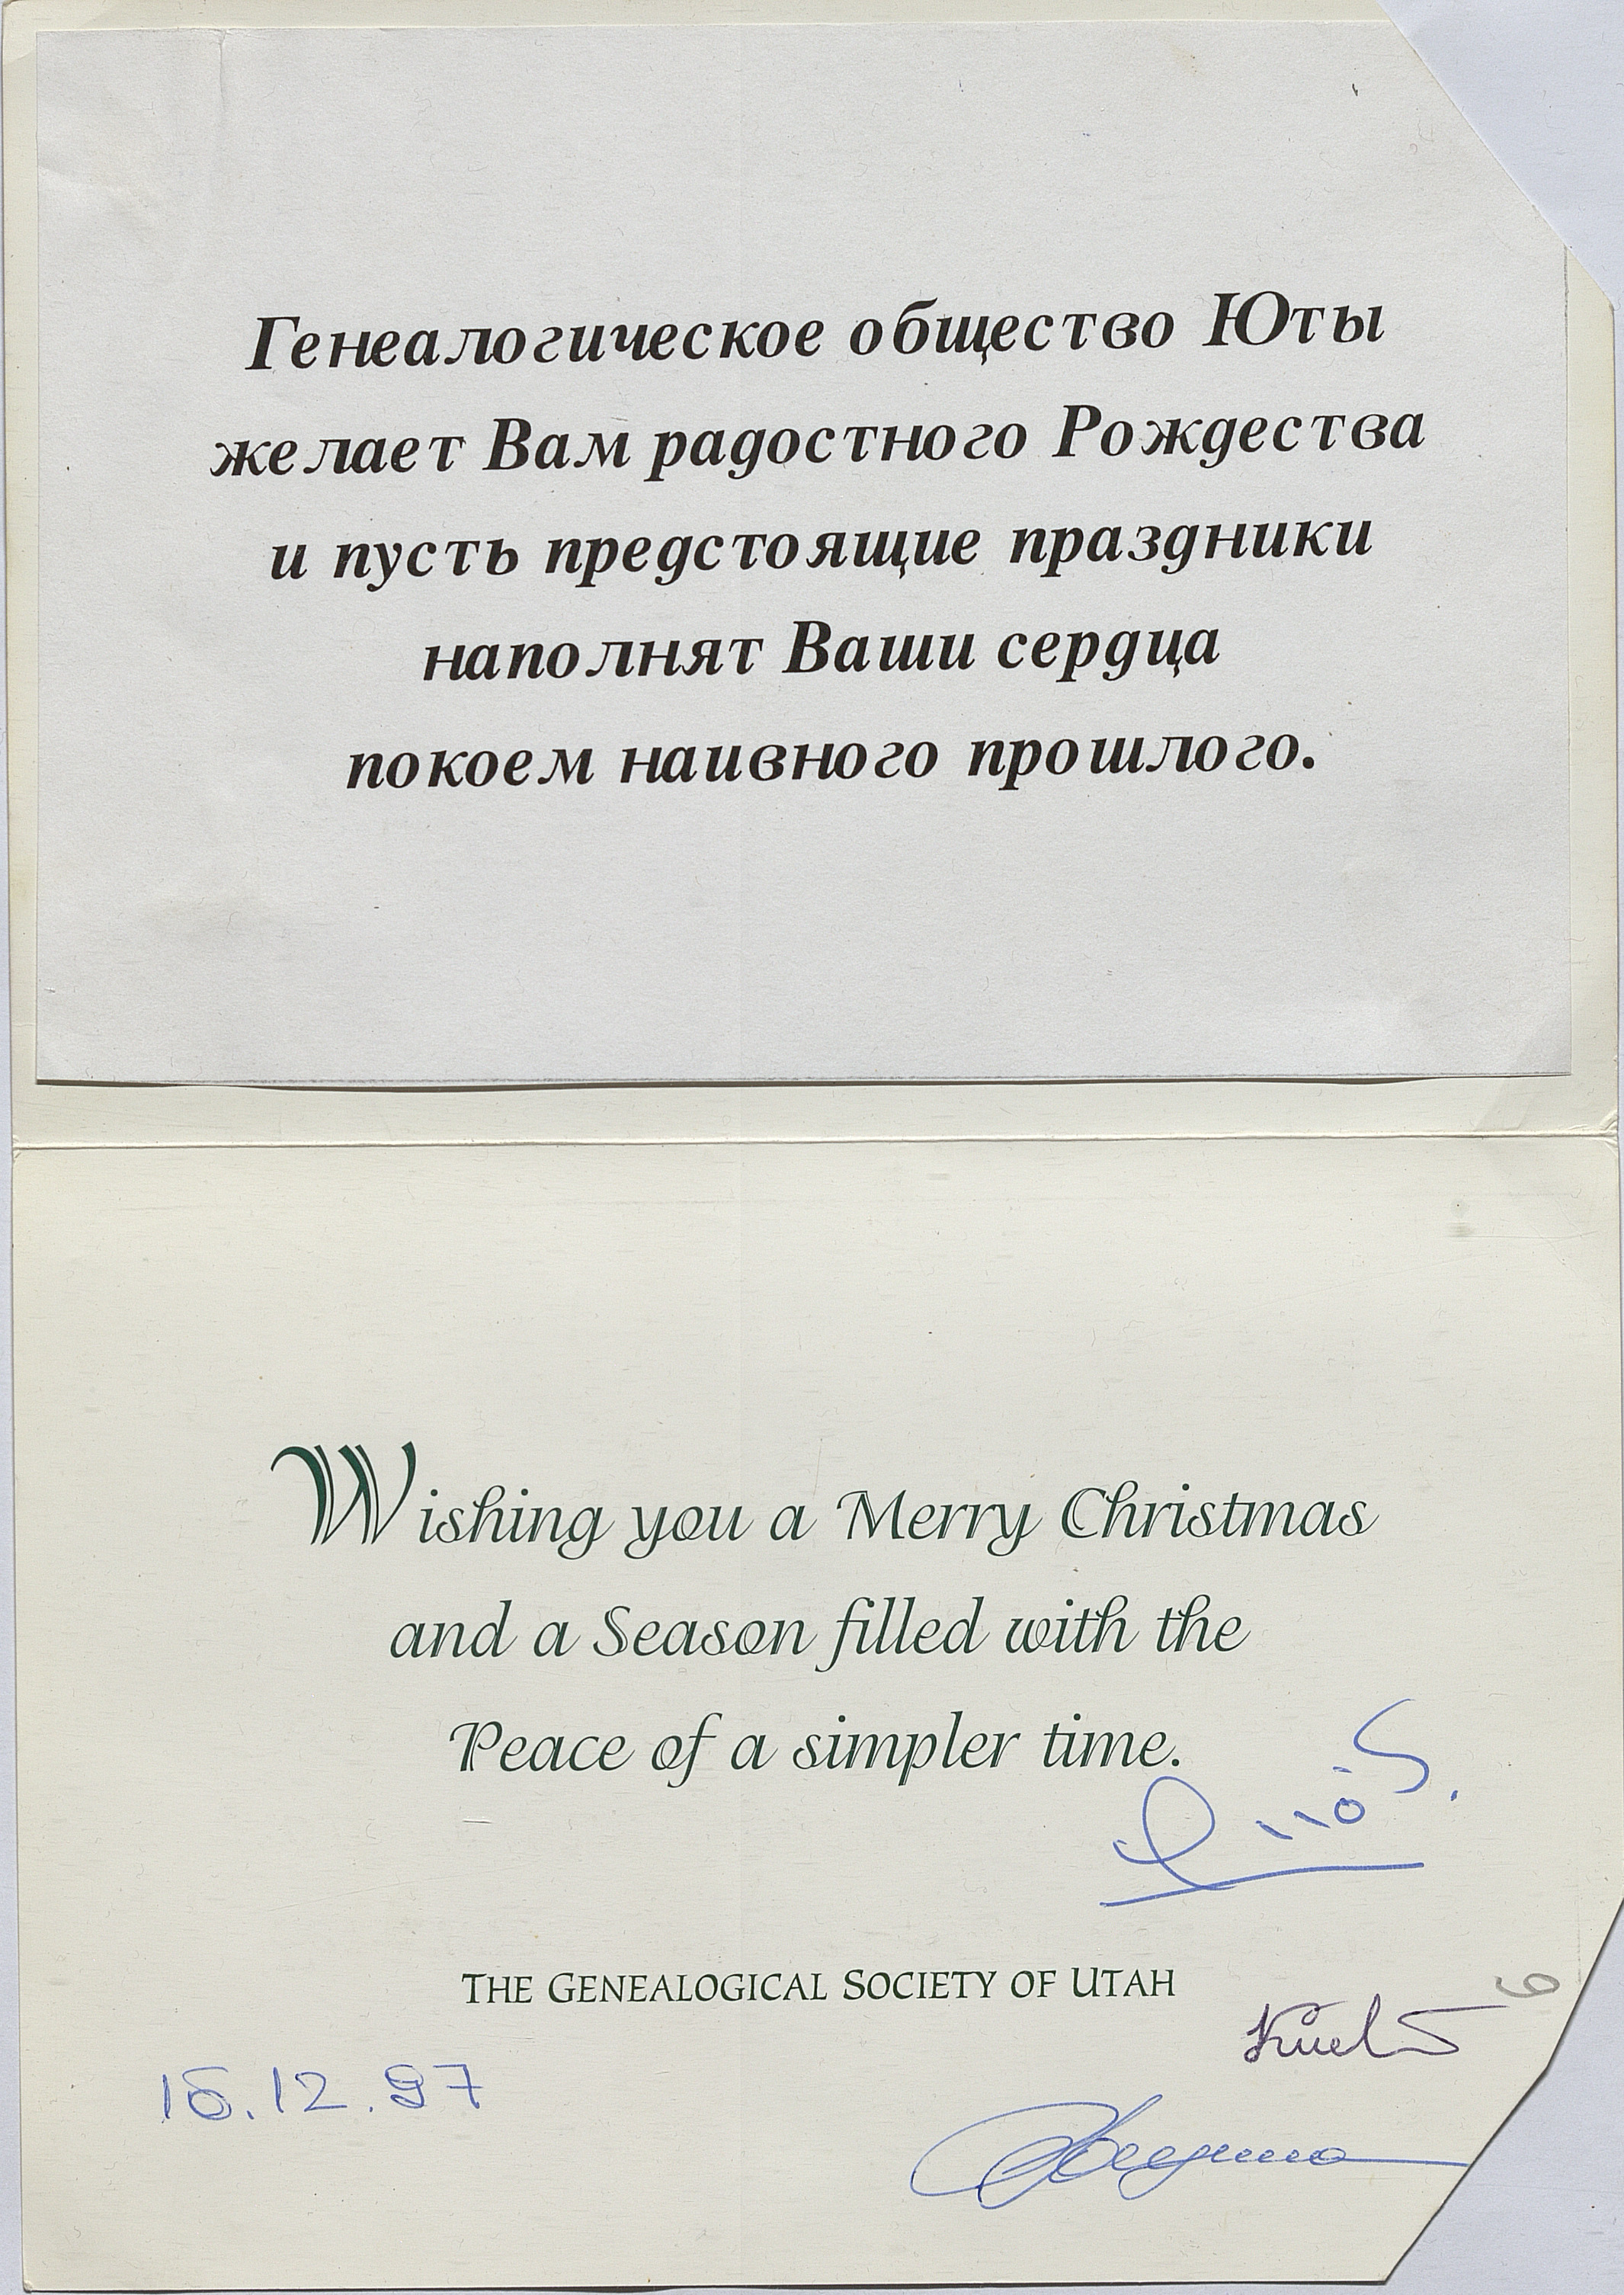 Генеалогическое общество Юты
желает Вам радостного Рождества
и пусть предстоящие праздники
наполнят Ваши сердца
покоем наивного прошлого.
Wishing you a Merry Christmas
and a Season filled with the
Peace of a simpler time.
THE GENEALOGICAL SOCIETY OF UTAH
6
15.12.97